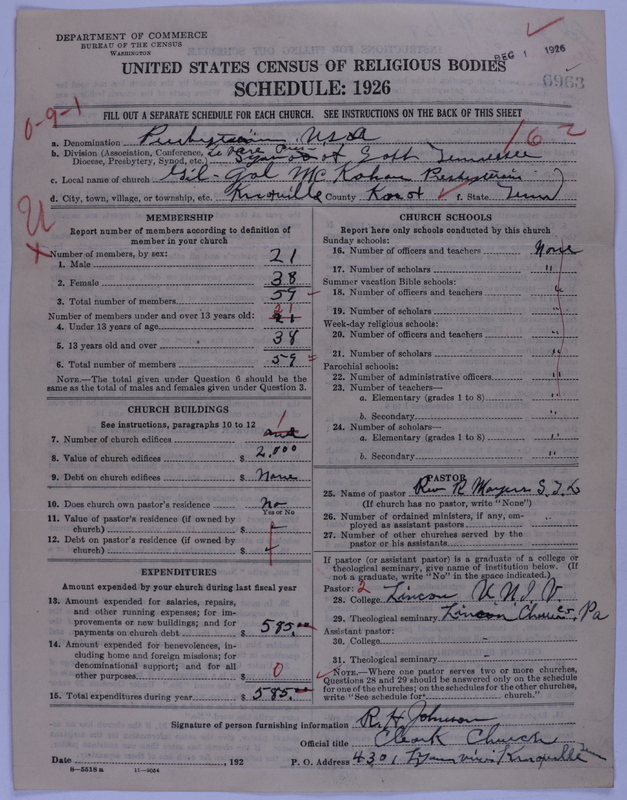 DEPARTMENT OF COMMERCE
BUREAU OF THE CENSUS
WASHINGTON
DEC 1 1926
6963
UNITED STATES CENSUS OF RELIGIOUS BODIES
SCHEDULE: 1926
0-9-1
FILL OUT A SEPARATE SCHEDULE FOR EACH CHURCH. SEE INSTRUCTIONS ON THE BACK OF THIS SHEET
a. Denomination Presbyterian USA
162
b. Division (Association, Conference, Diocese, Presbytery, Synod, etc.) of East Tennessee
c. Local name of church Gil-Gal Presbyterian
d. City, town, village, or township, etc. Knoxville County Knox f. State Tenn
U
MEMBERSHIP
Report number of members according to definition of member in your church
Number of members, by sex:
1. Male 21
2. Female 38
3. Total number of members 59
Number of members under and over 13 years old:
4. Under 13 years of age 21
5. 13 years old and over 38
6. Total number of members 59
NOTE.—The total given under Question 6 should be the same as the total of males and females given under Question 3.
CHURCH BUILDINGS
See instructions, paragraphs 10 to 12
7. Number of church edifices 1
8. Value of church edifices $ 2,000
9. Debt on church edifices $ None
10. Does church own pastor's residence No
Yes or No
11. Value of pastor's residence (if owned by church) $
12. Debt on pastor's residence (if owned by church) $
EXPENDITURES
Amount expended by your church during last fiscal year
13. Amount expended for salaries, repairs, and other running expenses; for improvements or new buildings; and for payments on church debt $ 585.00
14. Amount expended for benevolences, including home and foreign missions; for denominational support; and for all other purposes $ 0
15. Total expenditures during year $ 585.00
CHURCH SCHOOLS
Report here only schools conducted by this church
Sunday schools:
16. Number of officers and teachers None
17. Number of scholars "
Summer vacation Bible schools:
18. Number of officers and teachers "
19. Number of scholars "
Week-day religious schools:
20. Number of officers and teachers "
21. Number of scholars "
Parochial schools:
22. Number of administrative officers "
23. Number of teachers—
a. Elementary (grades 1 to 8) "
b. Secondary "
24. Number of scholars—
a. Elementary (grades 1 to 8) "
b. Secondary "
PASTOR
25. Name of pastor Rev R Mayers
(If church has no pastor, write "None")
26. Number of ordained ministers, if any, employed as assistant pastors "
27. Number of other churches served by the pastor or his assistants
If pastor (or assistant pastor) is a graduate of a college or theological seminary, give name of institution below. (If not a graduate, write "No" in the space indicated.)
Pastor: 2
28. College Lincon UNIV
29. Theological seminary Lincon Pa
Assistant pastor:
30. College -
31. Theological seminary
NOTE.—Where one pastor serves two or more churches, Questions 28 and 29 should be answered only on the schedule for one of the churches; on the schedules for the other churches, write "See schedule for church."
Signature of person furnishing information R. H Johnson
Official title Clerk Church
Date , 192 P. O. Address 4301 Knoxville Tenn
8—5518 a 11—9064